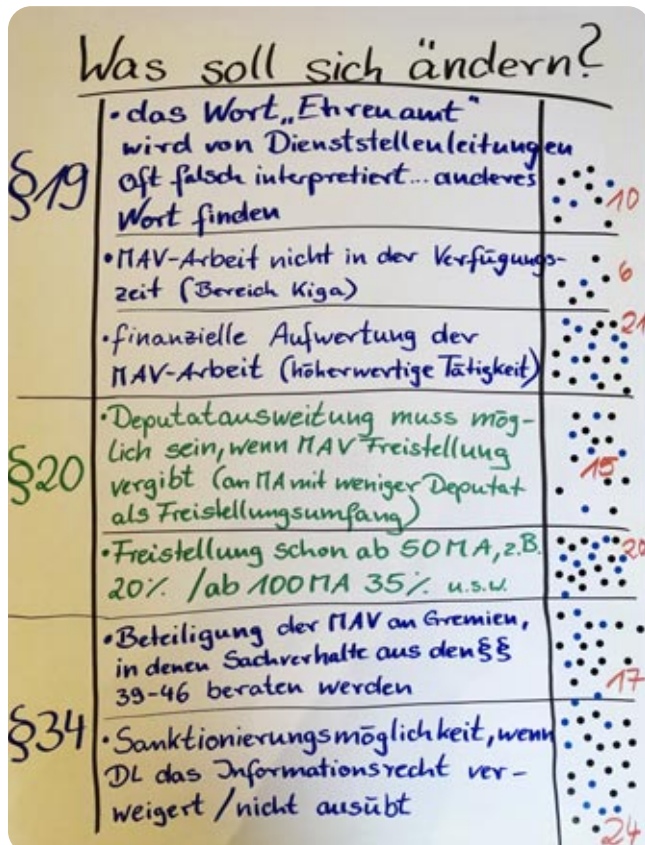 Was soll sich ändern?
§19
• das Wort „Ehrenamt"
wird von Dienststellenleitungen
oft falsch interpretiert... anderes
Wort finden
10
• MAV-Arbeit nicht in der Verfügungs-
zeit (Bereich Kiga)
6
• finanzielle Aufwertung der
MAV-Arbeit (höherwertige Tätigkeit)
21
§20
• Deputatausweitung muss mög-
lich sein, wenn MAV Freistellung
vergibt (an MA mit weniger Deputat
als Freistellungsumfang)
15
• Freistellung schon ab 50 MA, z.B.
20% / ab 100 MA 35% u.s.w.
20
§34
• Beteiligung der MAV an Gremien,
in denen Sachverhalte aus den §§
39-46 beraten werden
17
• Sanktionierungsmöglichkeit, wenn
DL das Informationsrecht ver-
weigert / nicht ausübt
24